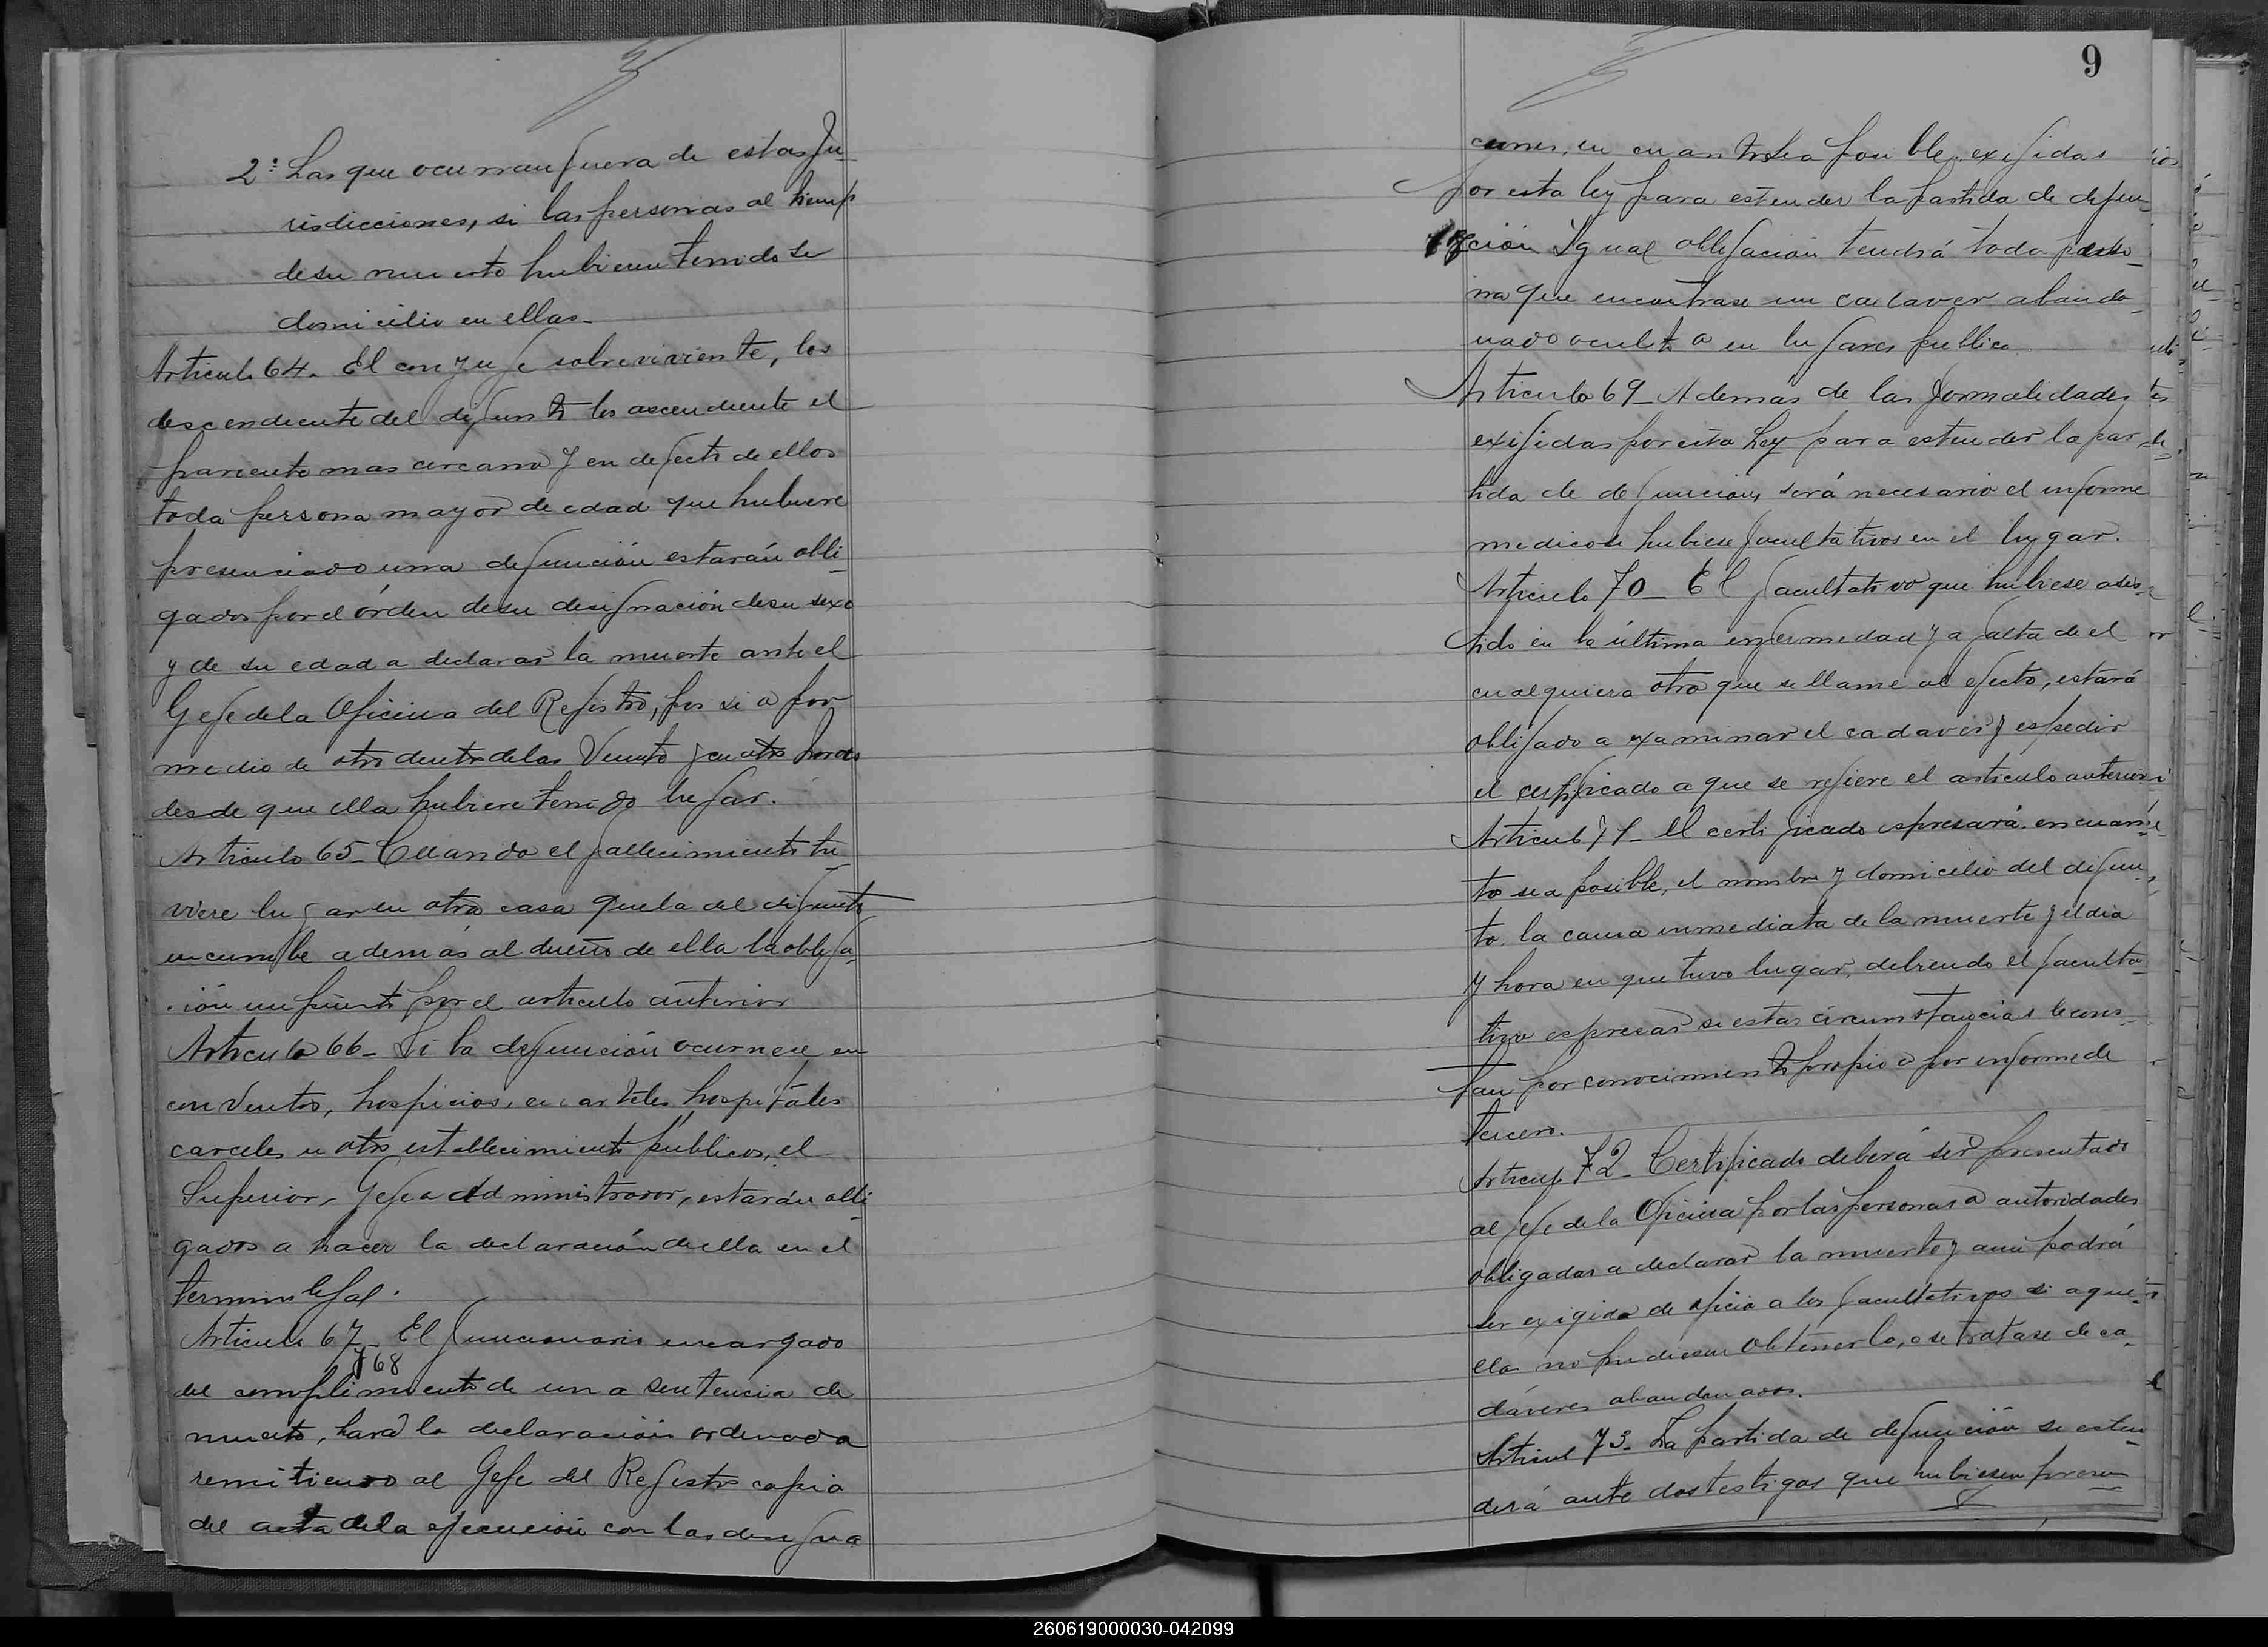 2ª Las que ocurran fuera de estas Ju-
risdicciones, si las personas al tiemp
de su muerte hubieren tenido su
domicilio en ellas-
Articulo 64. El conyuge sobreviviente, los
descendiente del difunto los ascendiente el
pariente mas cercano y en defecto de ellos
toda persona mayor de edad que hubiere
presenciado una defunción estarán obli-
gados por el órden de su designación de su sexo
y de su edad a declarar la muerte ante el
Gefe de la Oficina del Registro, por si o por
medio de otro dentro de las Veinte y cuatro horas
desde que ella hubiere tenido lugar.
Articulo 65- Cuando el fallecimiento tu-
viere lugar en otra casa que la del difunto
incumbe además al dueño de ella la obliga-
ción impuesta por el articulo anterior
Articulo 66- Si la defunción ocurriere en
conventos, hospicios, cuarteles hospitales
carceles u otro establecimiento públicos, el
Superior, Gefe o Administrador, estarán obli-
gados a hacer la declaración de ella en el
termino legal.
Articulo 67- El funcionario encargado
y 68
del complimiento de una sentencia de
muerte, hará la declaración ordenada
remitiendo al Gefe del Registro copia
del acta de la ejecución con las designa
9
ciones, en cuanto sea posible, exigidas
por esta ley para estender la partida de defun-
ción Igual obligación tendrá toda perso-
na que encontrase un cadaver abando-
nado oculto o en lugares publico
Articulo 69- Además de las formalidades
exigidas por esta Ley para estender la par-
tida de defunción, será necesario el informe
medico si hubiese facultativos en el lugar.
Articulo 70- El facultativo que hubiese asis-
tido en la última enfermedad y a falta de el
cualquiera otro que se llame al efecto, estará
obligado a examinar el cadaver y espedir
el certificado a que se refiere el articulo anterior
Articulo 71- El certificado espresará, en cuan-
to sea posible, el nombre y domicilio del difun-
to, la causa inmediata de la muerte y el dia
y hora en que tuvo lugar, debiendo el faculta-
tivo espresar si estas circunstancias le cons-
tan por conocimiento propio o por informe de
tercero.
Articulo 72- Certificado deberá ser presentado
al jefe de la Oficina por las personas o autoridades
obligadas a declarar la muerte y aun podrá
ser exigido de oficio a los facultativos si aque-
ella no pudiesen obtenerlo, o se tratase de ca-
dáveres abandonados.
Articul 73- La partida de defunción se esten-
derá ante dos testigos que hubiesen presen
260619000030-042099